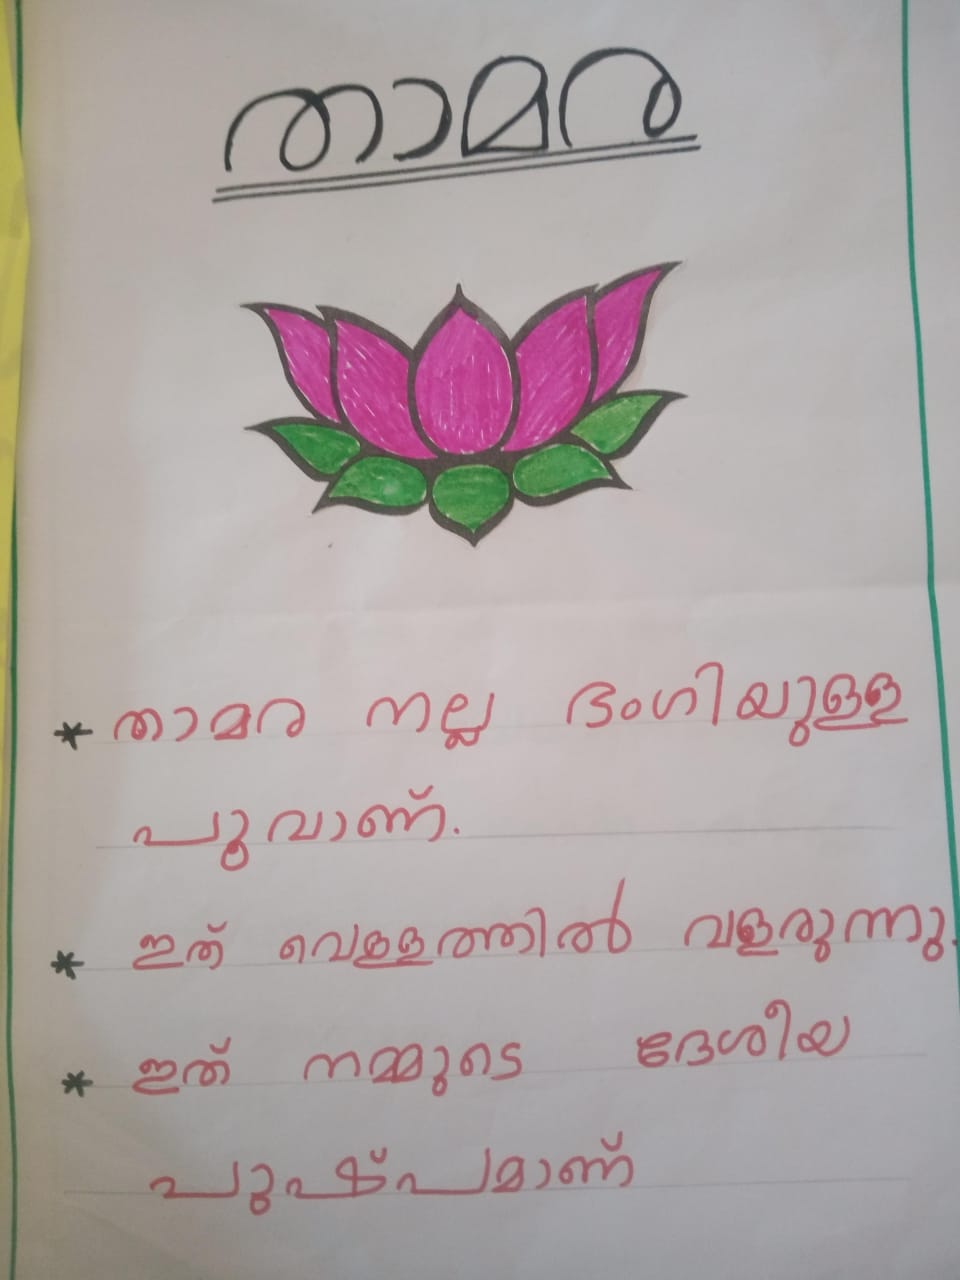 താമര
* താമര നല്ല ഭംഗിയുള്ള
പൂവാണ്.
* ഇത് വെള്ളത്തിൽ വളരുന്നു.
* ഇത് നമ്മുടെ ദേശീയ
പുഷ്പമാണ്